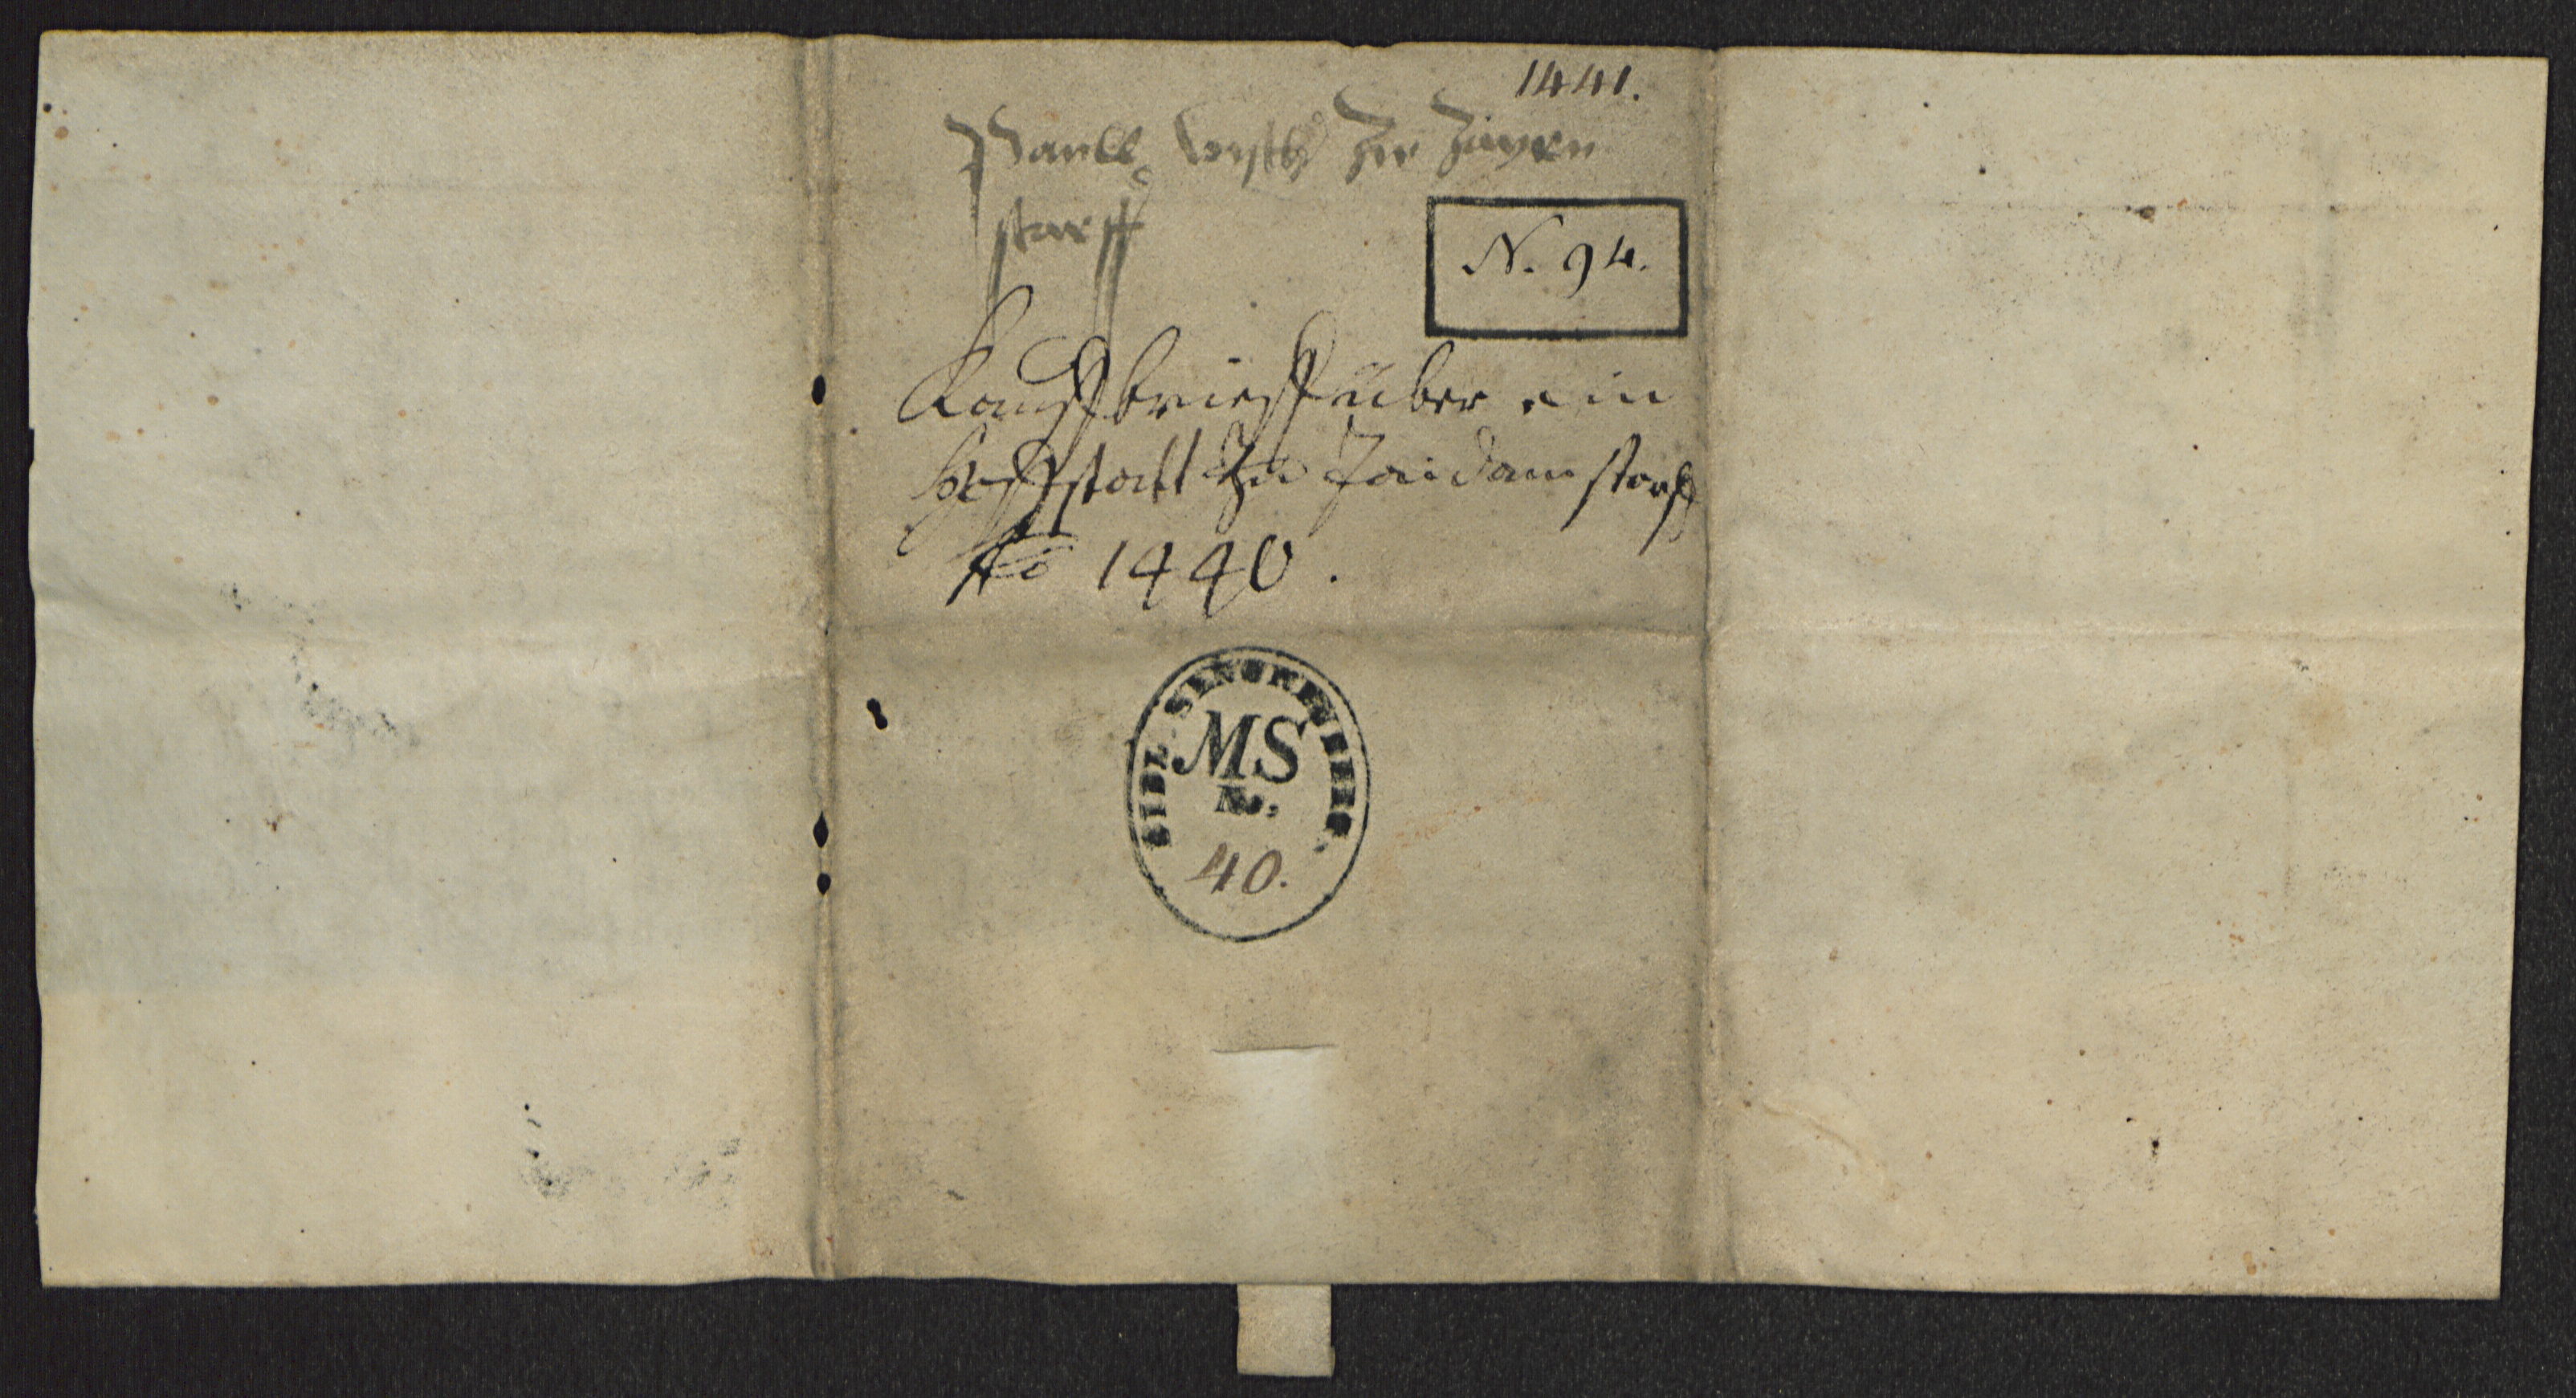 1441.
Paull zu
storff
N. 94.
Kauffbrieff über ein
Hoffstatt zu Jaidamstorff
Ao 1440.
BIBL. SENCKENBERG.
MS
No.
40.